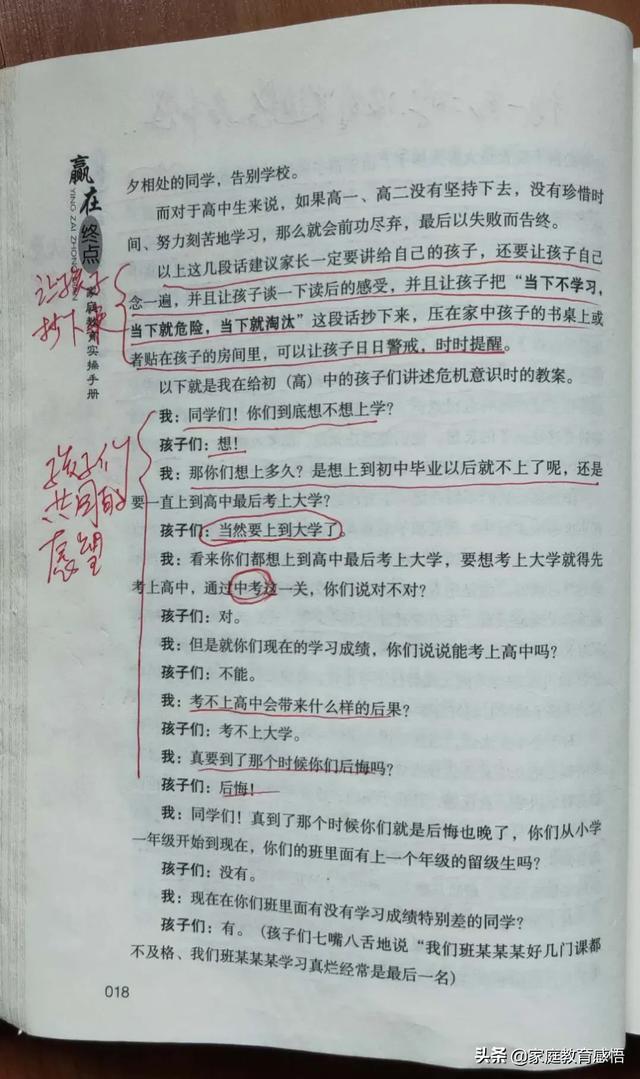 赢在终点
YING ZAI ZHONG DIAN
家庭教育实操手册
夕相处的同学，告别学校。
而对于高中生来说，如果高一、高二没有坚持下去，没有珍惜时
间、努力刻苦地学习，那么就会前功尽弃，最后以失败而告终。
以上这几段话建议家长一定要讲给自己的孩子，还要让孩子自己
念一遍，并且让孩子谈一下读后的感受，并且让孩子把“当下不学习，
当下就危险，当下就淘汰”这段话抄下来，压在家中孩子的书桌上或
者贴在孩子的房间里，可以让孩子日日警戒，时时提醒。
让孩子
抄下来
以下就是我在给初（高）中的孩子们讲述危机意识时的教案。
我：同学们！你们到底想不想上学？
孩子们：想！
我：那你们想上多久？是想上到初中毕业以后就不上了呢，还是
要一直上到高中最后考上大学？
孩子们：当然要上到大学了。
孩子们
共同的
愿望
我：看来你们都想上到高中最后考上大学，要想考上大学就得先
考上高中，通过中考这一关，你们说对不对？
孩子们：对。
我：但是就你们现在的学习成绩，你们说说能考上高中吗？
孩子们：不能。
我：考不上高中会带来什么样的后果？
孩子们：考不上大学。
我：真要到了那个时候你们后悔吗？
孩子们：后悔！
我：同学们！真到了那个时候你们就是后悔也晚了，你们从小学
一年级开始到现在，你们的班里面有上一个年级的留级生吗？
孩子们：没有。
我：现在在你们班里面有没有学习成绩特别差的同学？
孩子们：有。（孩子们七嘴八舌地说“我们班某某某好几门课都
不及格、我们班某某某学习真烂经常是最后一名）
018
头条 @家庭教育感悟